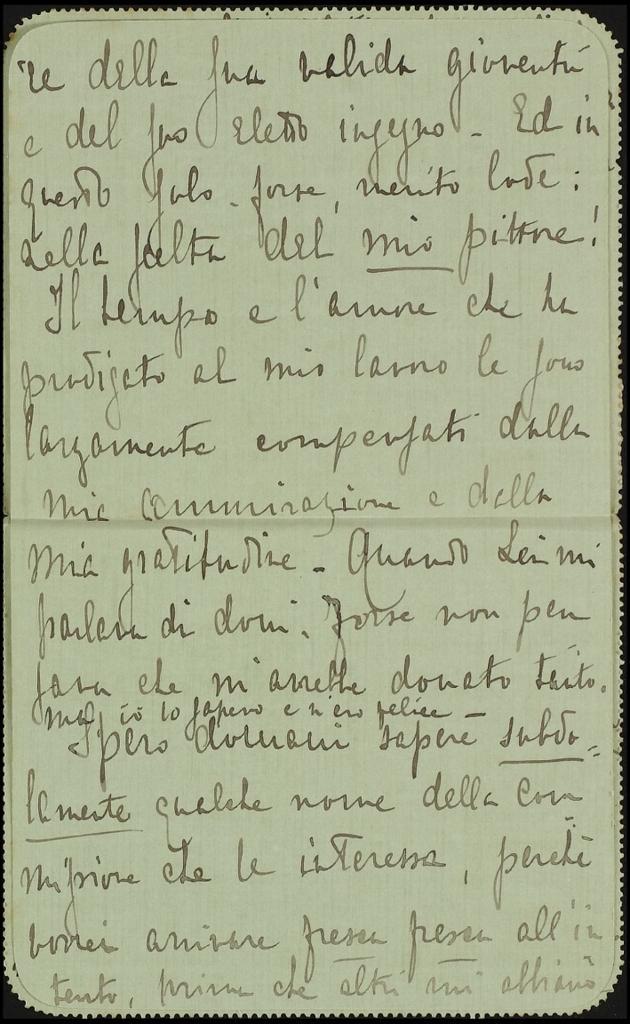 re della sua valida gioventù
e del suo eletto ingegno - Ed in
questo solo - forse, merito lode:
nella scelta del mio pittore!
Il tempo e l'amore che ha
prodigato al mio lavoro le sono
largamente compensati dalla
mia ammirazione e dalla
mia gratitudine - Quando Lei mi
parlava di doni, forse non pen
sava che m'avrebbe donato tanto.
ma, io lo sapevo e n'ero felice
Spero domani sapere subdo=
lamente qualche nome della com
missione che le interessa, perchè
vorrei arrivare fresca fresca all'in
tento, prima che altri mi abbiano